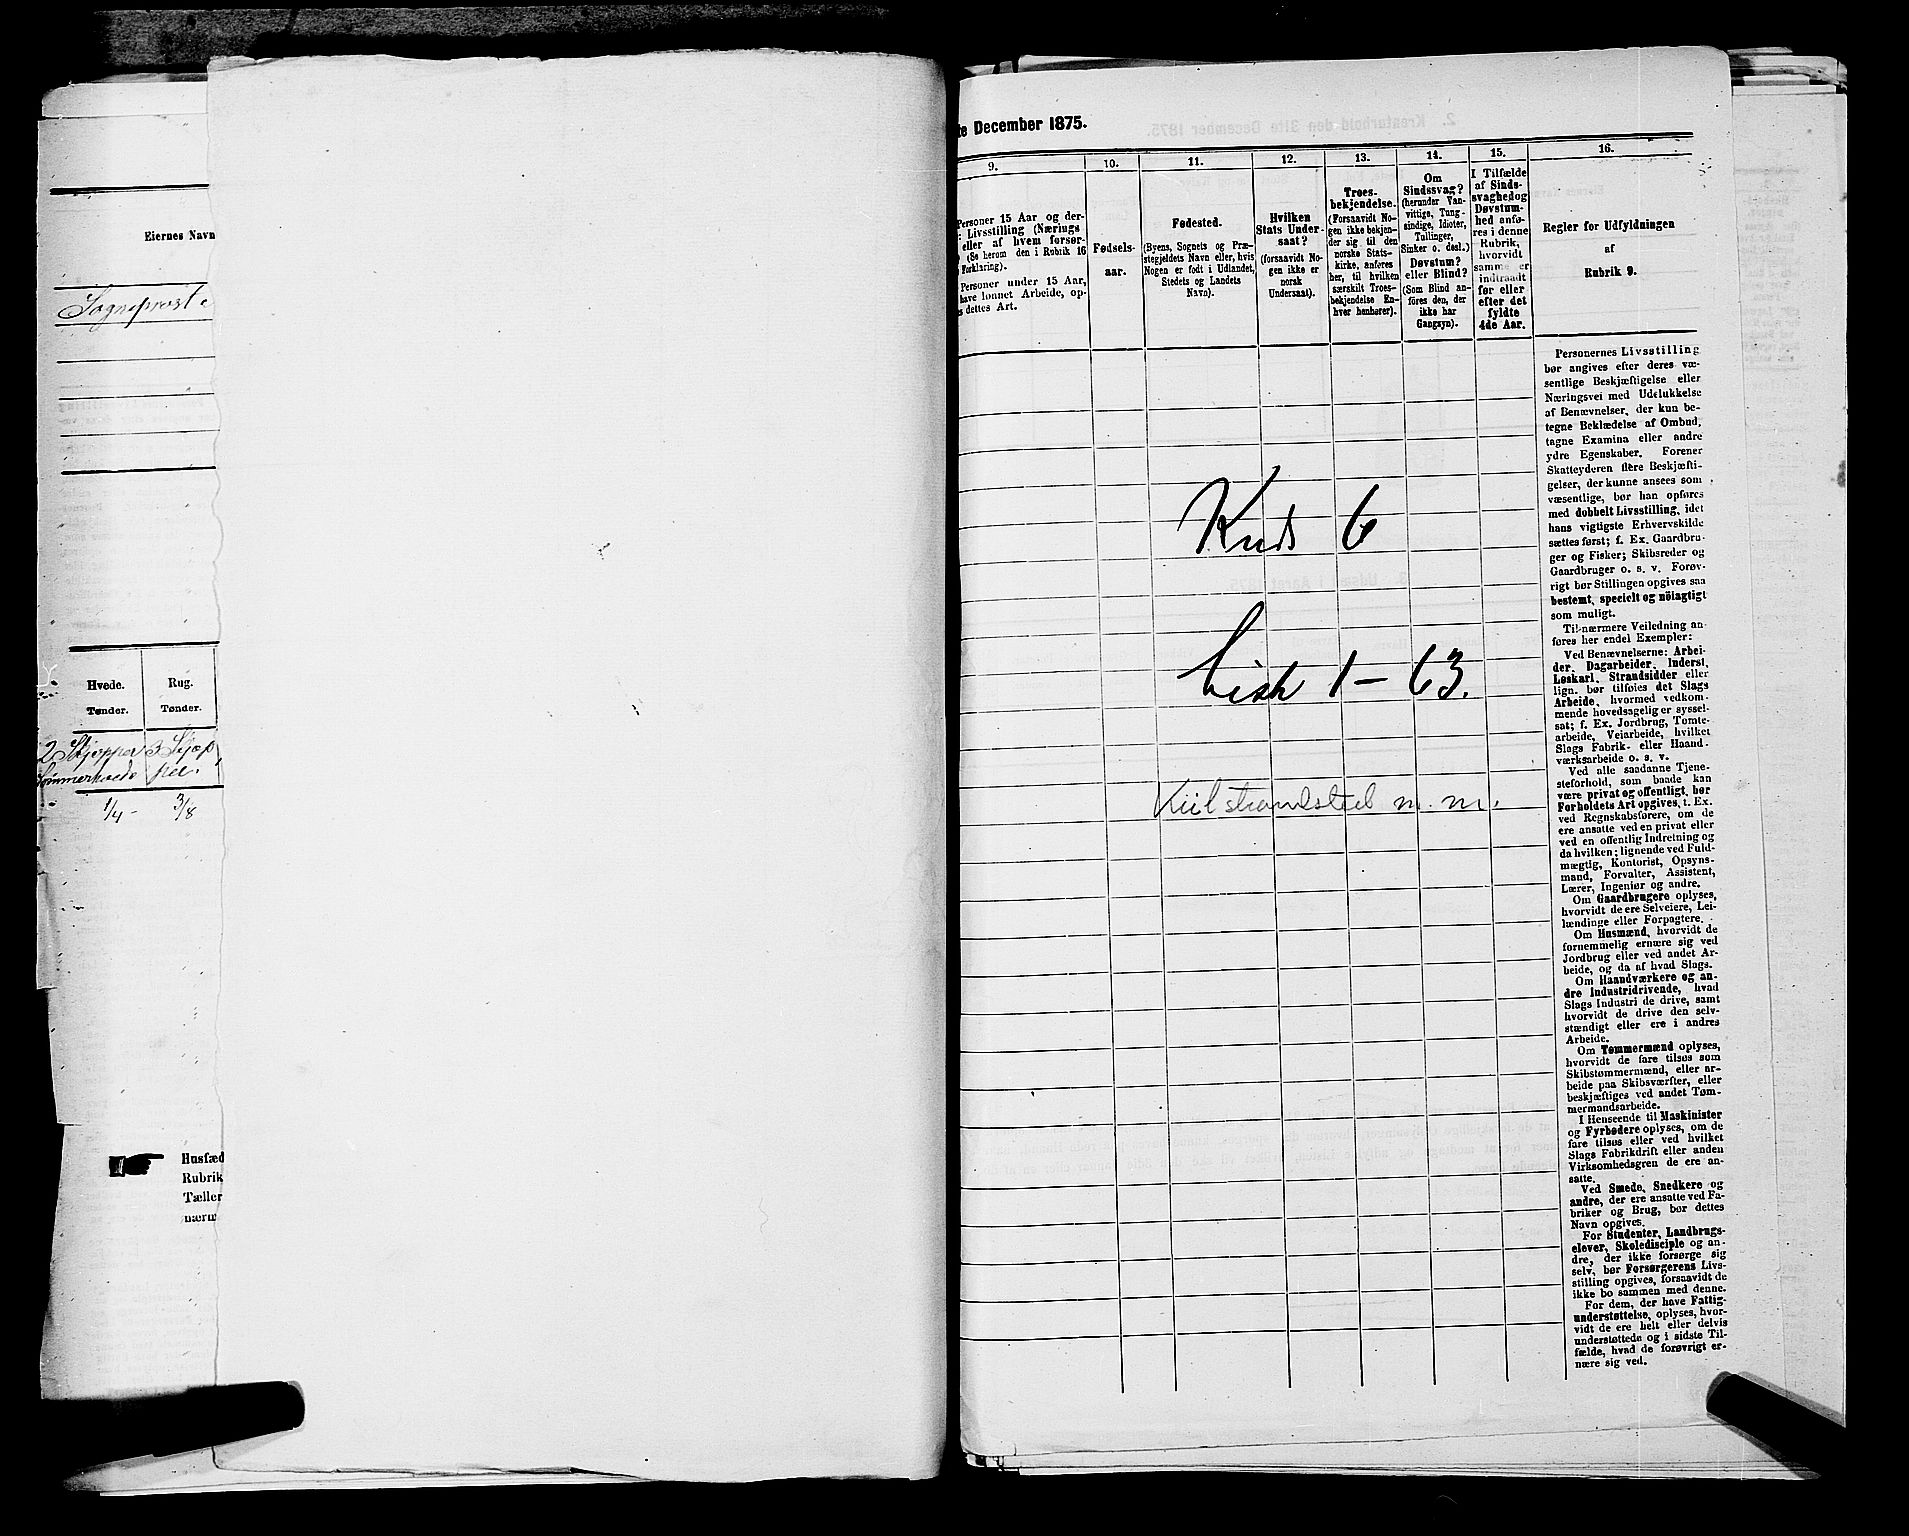 Eiernes Navn
Sognepreste
Hvede. Rug.
Tønder. Tønder.
2 Skjepper 3 Skjæp
Sommerhvede per.
1/4 - 3/8
Husfæd
Rubrik
Tæller
nærm
te December 1875.
9. 10. 11. 12. 13. 14. 15. 16.
Personer 15 Aar og der-
: Livsstilling (Nærings
eller af hvem forsør-
) (Se herom den i Rubrik 16
Forklaring).
Personer under 15 Aar,
have lønnet Arbeide, op-
s dettes Art.
Fødsels-
aar.
Fødested.
(Byens, Sognets og Præ-
stegjeldets Navn eller, hvis
Nogen er født i Udlandet,
Stedets og Landets
Navn).
Hvilken
Stats Under-
saat?
(forsaavidt No-
gen ikke er
norsk
Undersaat).
Troes-
bekjendelse.
(Forsaavidt No-
gen ikke bekjen-
der sig til den
norske Stats-
kirke, anføres
her, til hvilken
særskilt Troes-
bekjendelse En-
hver henhører).
Om
Sindssvag?
(herunder Van-
vittige, Tung-
sindige, Idioter,
Tullinger,
Sinker o. desl.)
Døvstum?
eller Blind?
(Som Blind an-
føres den, der
ikke har
Gangsyn).
I Tilfælde
af Sinds-
svaghed og
Døvstum-
hed anfø-
res i denne
Rubrik,
hvorvidt
samme er
indtraadt
før eller
efter det
fyldte
4de Aar.
Regler for Udfyldningen
af
Rubrik 9.
Kreds 6
Liste 1 - 63.
Kiilstrandsted m. m.
Personernes Livsstilling
bør angives efter deres væ-
sentlige Beskjæftigelse eller
Næringsvei med Udelukkelse
af Benævnelser, der kun be-
tegne Beklædelse af Ombud,
tagne Examina eller andre
ydre Egenskaber. Forener
Skatteyderen flere Beskjæfti-
gelser, der kunne ansees som
væsentlige, bør han opføres
med dobbelt Livsstilling, idet
hans vigtigste Erhvervskilde
sættes først; f. Ex. Gaardbru-
ger og Fisker; Skibsreder og
Gaardbruger o. s. v. Forøv-
rigt bør Stillingen opgives saa
bestemt, specielt og nöiagtigt
som muligt.
Til nærmere Veiledning an-
føres her endel Exempler:
Ved Benævnelserne: Arbei-
der, Dagarbeider, Inderst,
Løskarl, Strandsidder eller
lign. bør tilføies det Slags
Arbeide, hvormed vedkom-
mende hovedsagelig er syssel-
sat; f. Ex. Jordbrug, Tomte-
arbeide, Veiarbeide, hvilket
Slags Fabrik- eller Haand-
værksarbeide o. s. v.
Ved alle saadanne Tjene-
steforhold, som baade kan
være privat og offentligt, bør
Forholdets Art opgives, t. Ex.
ved Regnskabsførere, om de
ere ansatte ved en privat eller
ved en offentlig Indretning og
da hvilken; lignende ved Fuld-
mægtig, Kontorist, Opsyns-
mand, Forvalter, Assistent,
Lærer, Ingeniør og andre.
Om Gaardbrugere oplyses,
hvorvidt de ere Selveiere, Lei-
lændinge eller Forpagtere.
Om Husmænd, hvorvidt de
fornemmelig ernære sig ved
Jordbrug eller ved andet Ar-
beide, og da af hvad Slags.
Om Haandværkere og an-
dre Industridrivende, hvad
Slags Industri de drive, samt
hvorvidt de drive den selv-
stændigt eller ere i andres
Arbeide.
Om Tømmermænd oplyses,
hvorvidt de fare tilsøs som
Skibstømmermænd, eller ar-
beide paa Skibsværfter, eller
beskjæftiges ved andet Tøm-
mermandsarbeide.
I Henseende til Maskinister
og Fyrbødere oplyses, om de
fare tilsøs eller ved hvilket
Slags Fabrikdrift eller anden
Virksomhedsgren de ere an-
satte.
Ved Smede, Snedkere og
andre, der ere ansatte ved Fa-
briker og Brug, bør dettes
Navn opgives.
For Studenter, Landbrugs-
elever, Skoledisciple og an-
dre, der ikke forsørge sig
selv, bør Forsørgerens Livs-
stilling opgives, forsaavidt de
ikke bo sammen med denne.
For dem, der have Fattig-
understøttelse, oplyses, hvor-
vidt de ere helt eller delvis
understøttede og i sidste Til-
fælde, hvad de forøvrigt er-
nære sig ved.